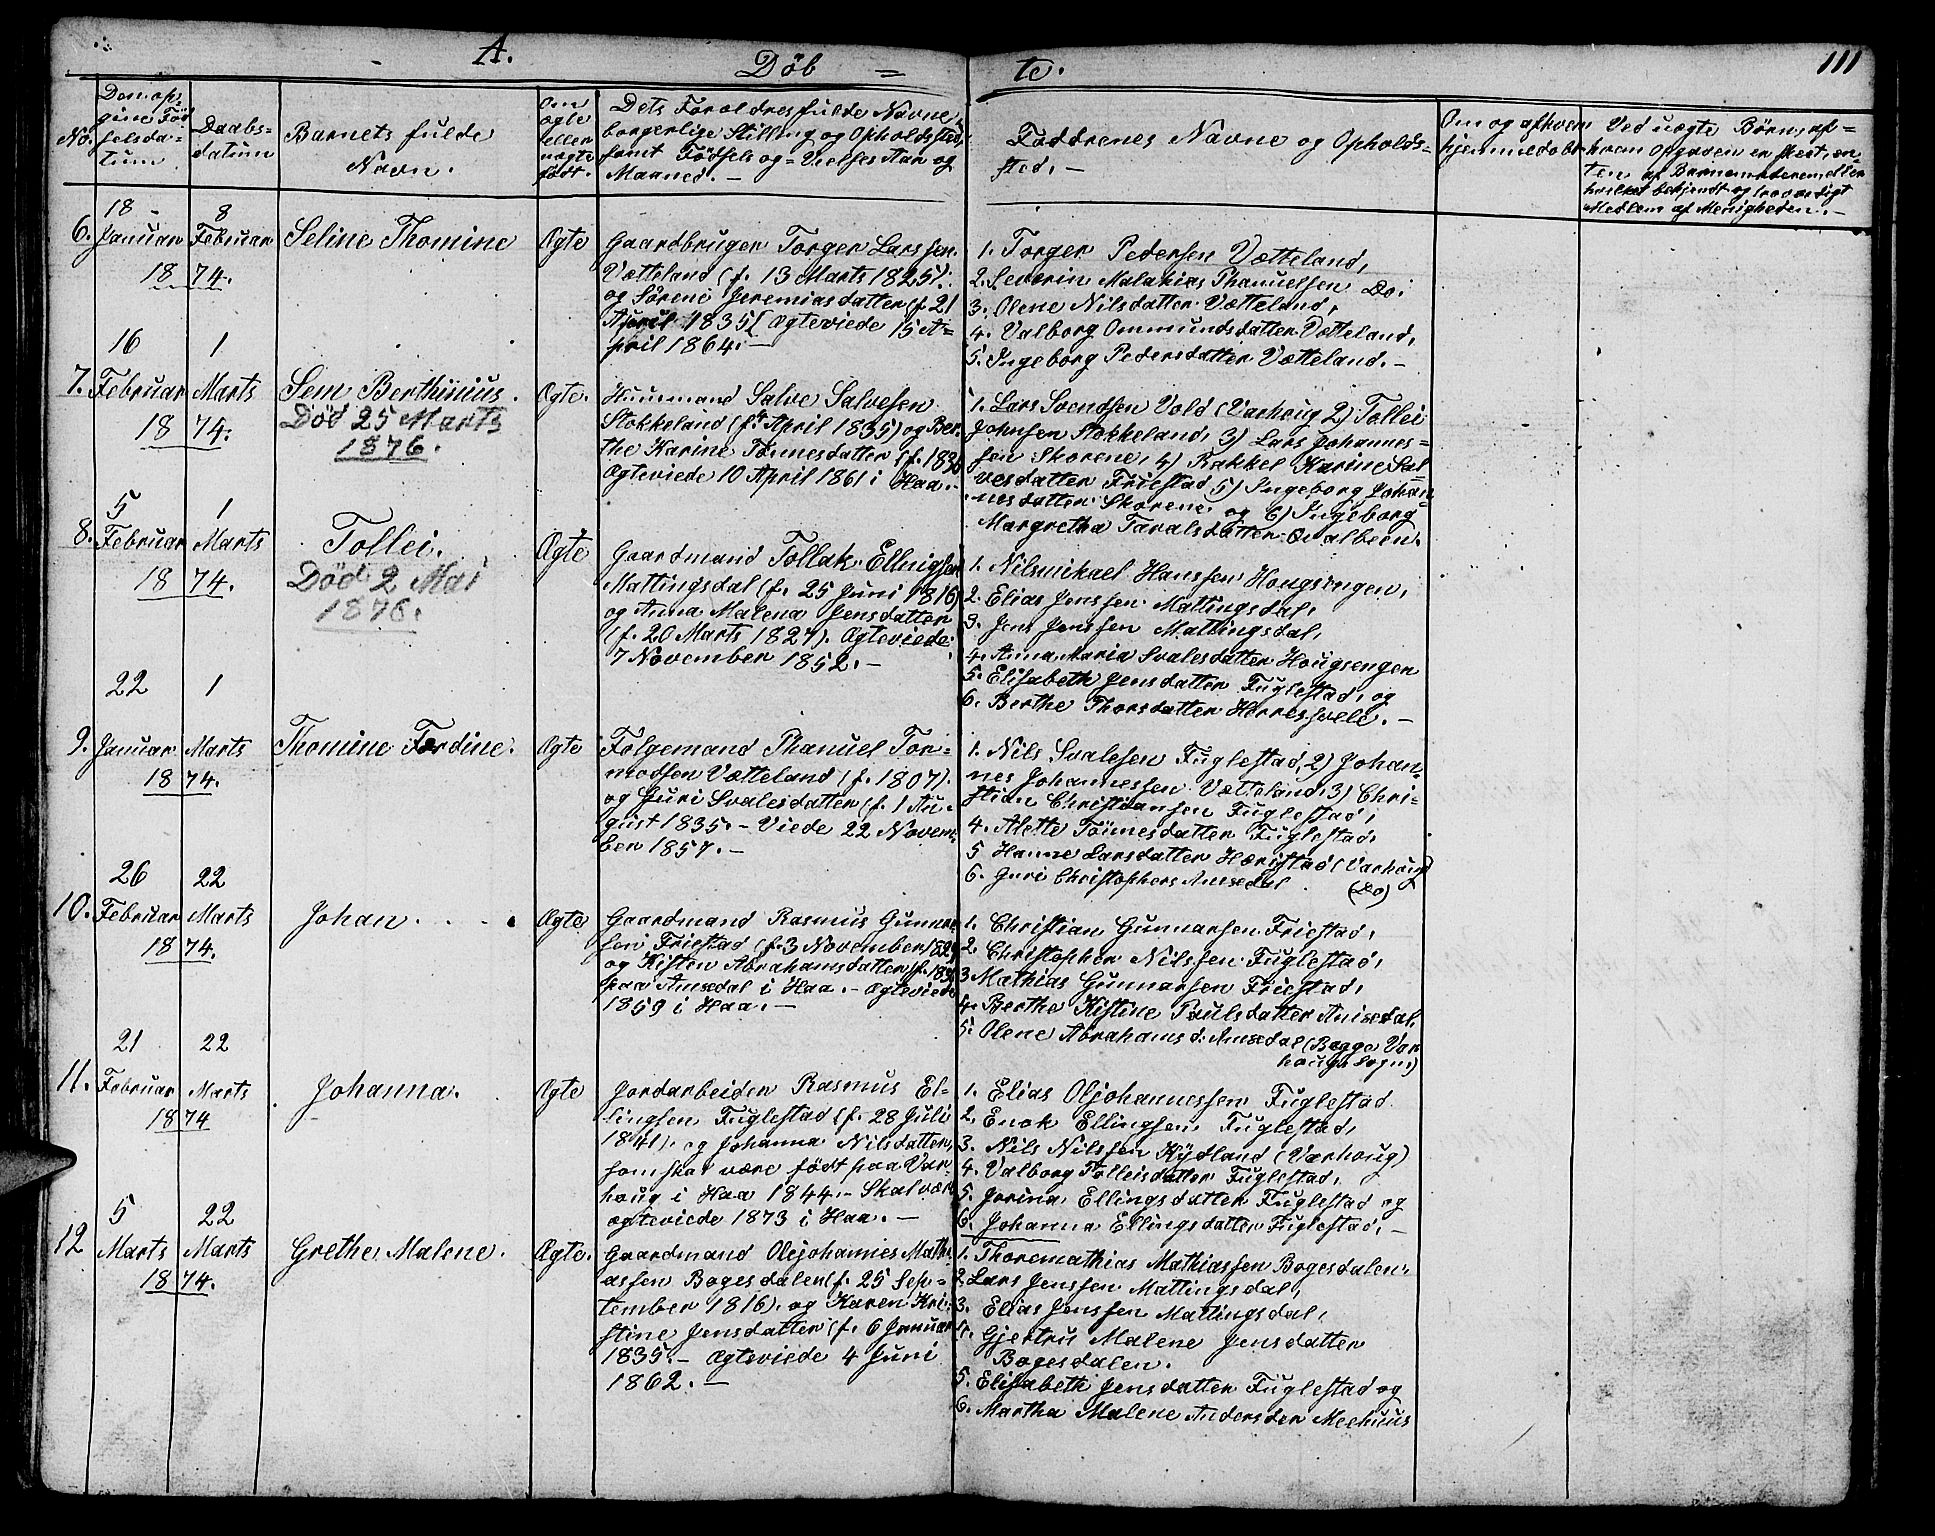 A.
Døb = te.
111
No.
Den opgivne Fødselsdatum
Daabsdatum
Barnets fulde Navn.
Om ægte eller uægte født.
Dets Forældres fulde Navne,
borgerlige Stilling og Opholdssted,
samt Fødsels og = Vielses Aar og
Maaned. —
Faddrenes Navne og Opholds=
sted. —
Om og af hvem
hjemmedøbt
Ved uægte Børn, af =
hvem Opgaven er skeet, en=
ten af Barnemoderen eller
hvilket bekjendt og troværdigt
Medlem af Menigheden. —
6.
18 Januar
8 Februar
1874.
Seline Thomine
Ægte
Gaardbruger Torger Larssen
Vætteland (f. 13 Marts 1825).
og Sørene Jeremiasdatter (f. 21
April 1835[ Ægteviede 15 A=
pril 1864. —
1. Torger Pedersen Vætteland,
2. Severin Malakias Thanuelsen Do.
3. Olene Nilsdatter Vætteland,
4. Valborg Ommundsdatter Vætteland,
5. Ingeborg Pedersdatter Vætteland. —
7.
16 Februar
1 Marts
1874.
Sem Berthinius.
Død 25 Marts
1876.
Ægte.
Huusmand Salve Salvesen
Stokkeland (f. April 1835) og Ber=
the Karine Tønnesdatter (f. 1836
Ægteviede 10 April 1861 i Haa. —
1. Lars Svendsen Vold (Varhoug 2) Tollei
Johnsen Stokkeland, 3) Lars Johannes=
sen Skorene, 4) Rakkel Karine Sal
vesdatter Friestad 5) Ingeborg Johan=
nesdatter Skorene, og 6) Ingeborg
Margretha Tarvalsdatter Qvalbeen.
8.
5 Februar
1 Marts
1874.
Tollei.
Død 2 Mai
1876.
Ægte
Gaardmand Tollak Ellingsen
Mattingsdal (f. 25 Juni 1816)
og Anna Malena Jensdatter
(f. 20 Marts 1827). Ægteviede
7 November 1852. —
1. Nilsmikael Hanssen Hougsengen,
2. Elias Jenssen Mattingsdal,
3. Jens Jenssen Mattingsdal,
4. Anna Maria Svalesdatter Hougsengen
5. Elisabeth Jensdatter Fuglestad, og
6. Berthe Thorsdatter Herresvele. —
9.
22 Januar
1 Marts
1874.
Thomine Fordine.
Ægte
Følgemand Thanuel Tor=
modsen Vætteland (f. 1807).
og Guri Svalesdatter (f. 1 Au=
gust 1835. — Viede 22 Novem=
ber 1857. —
1. Nils Svalesen Fuglestad, 2) Johan=
nes Johannessen Vætteland, 3) Chri=
stian Christiansen Fuglestad,
4. Alette Tønnesdatter Fuglestad,
5 Hanne Larsdatter Hæristad (Varhoug)
6. Guri Christophers Amsedal (Do)
10.
26 Februar
22 Marts
1874.
Johan.
Ægte
Gaardmand Rasmus Gunnar
sen Friestad (f. 3 November 1829
og Kisten Abrahamsdatter (f. 183
paa Amsedal i Haa. — Ægteviede
1859 i Haa. —
1. Christian Gunnarsen Friestad,
2. Christopher Nilssen Fuglestad,
3 Mathias Gunnarsen Friestad,
4. Berthe Kistine Paulsdatter Amsedal,
5. Olene Abrahamsd. Amsedal (Begge Var
hougs Sogn.)
11.
21 Februar
22 Marts
1874
Johanna.
Ægte
Jordarbeider Rasmus El=
lingsen Fuglestad (f. 28 Juli
1841), og Johanna Nilsdatter,
som skal være født paa Var=
houg i Haa 1844. — Skal være
ægteviede 1873 i Haa. —
1. Elias Oljohannessen Fuglestad.
2. Enok Ellingsen Fuglestad,
3. Nils Nilssen Kydland (Varhoug)
4. Valborg Tolleisdatter Fuglestad,
5. Jorina Ellingsdatter Fuglestad og
6. Johanna Ellingsdatter Fuglestad, —
12
5 Marts
22 Marts
1874.
Grethe Malene.
Ægte.
Gaardmand Olejohannes Mathi
assen Bøgesdalen (f. 25 Sep=
tember 1816). og Karen Kri=
stine Jensdatter (f. 6 Januar
1835. — Ægteviede 4 Juni
1862. —
1. Thoremathias Mathiassen Bøgesdalen,
2. Lars Jenssen Mattingsdal,
3. Elias Jenssen Mattingsdal,
4. Gjertru Malene Jensdatter
Bøgesdalen.
5. Elisabeth Jensdatter Fuglestad og
6. Martha Malene Andersden Meehuus